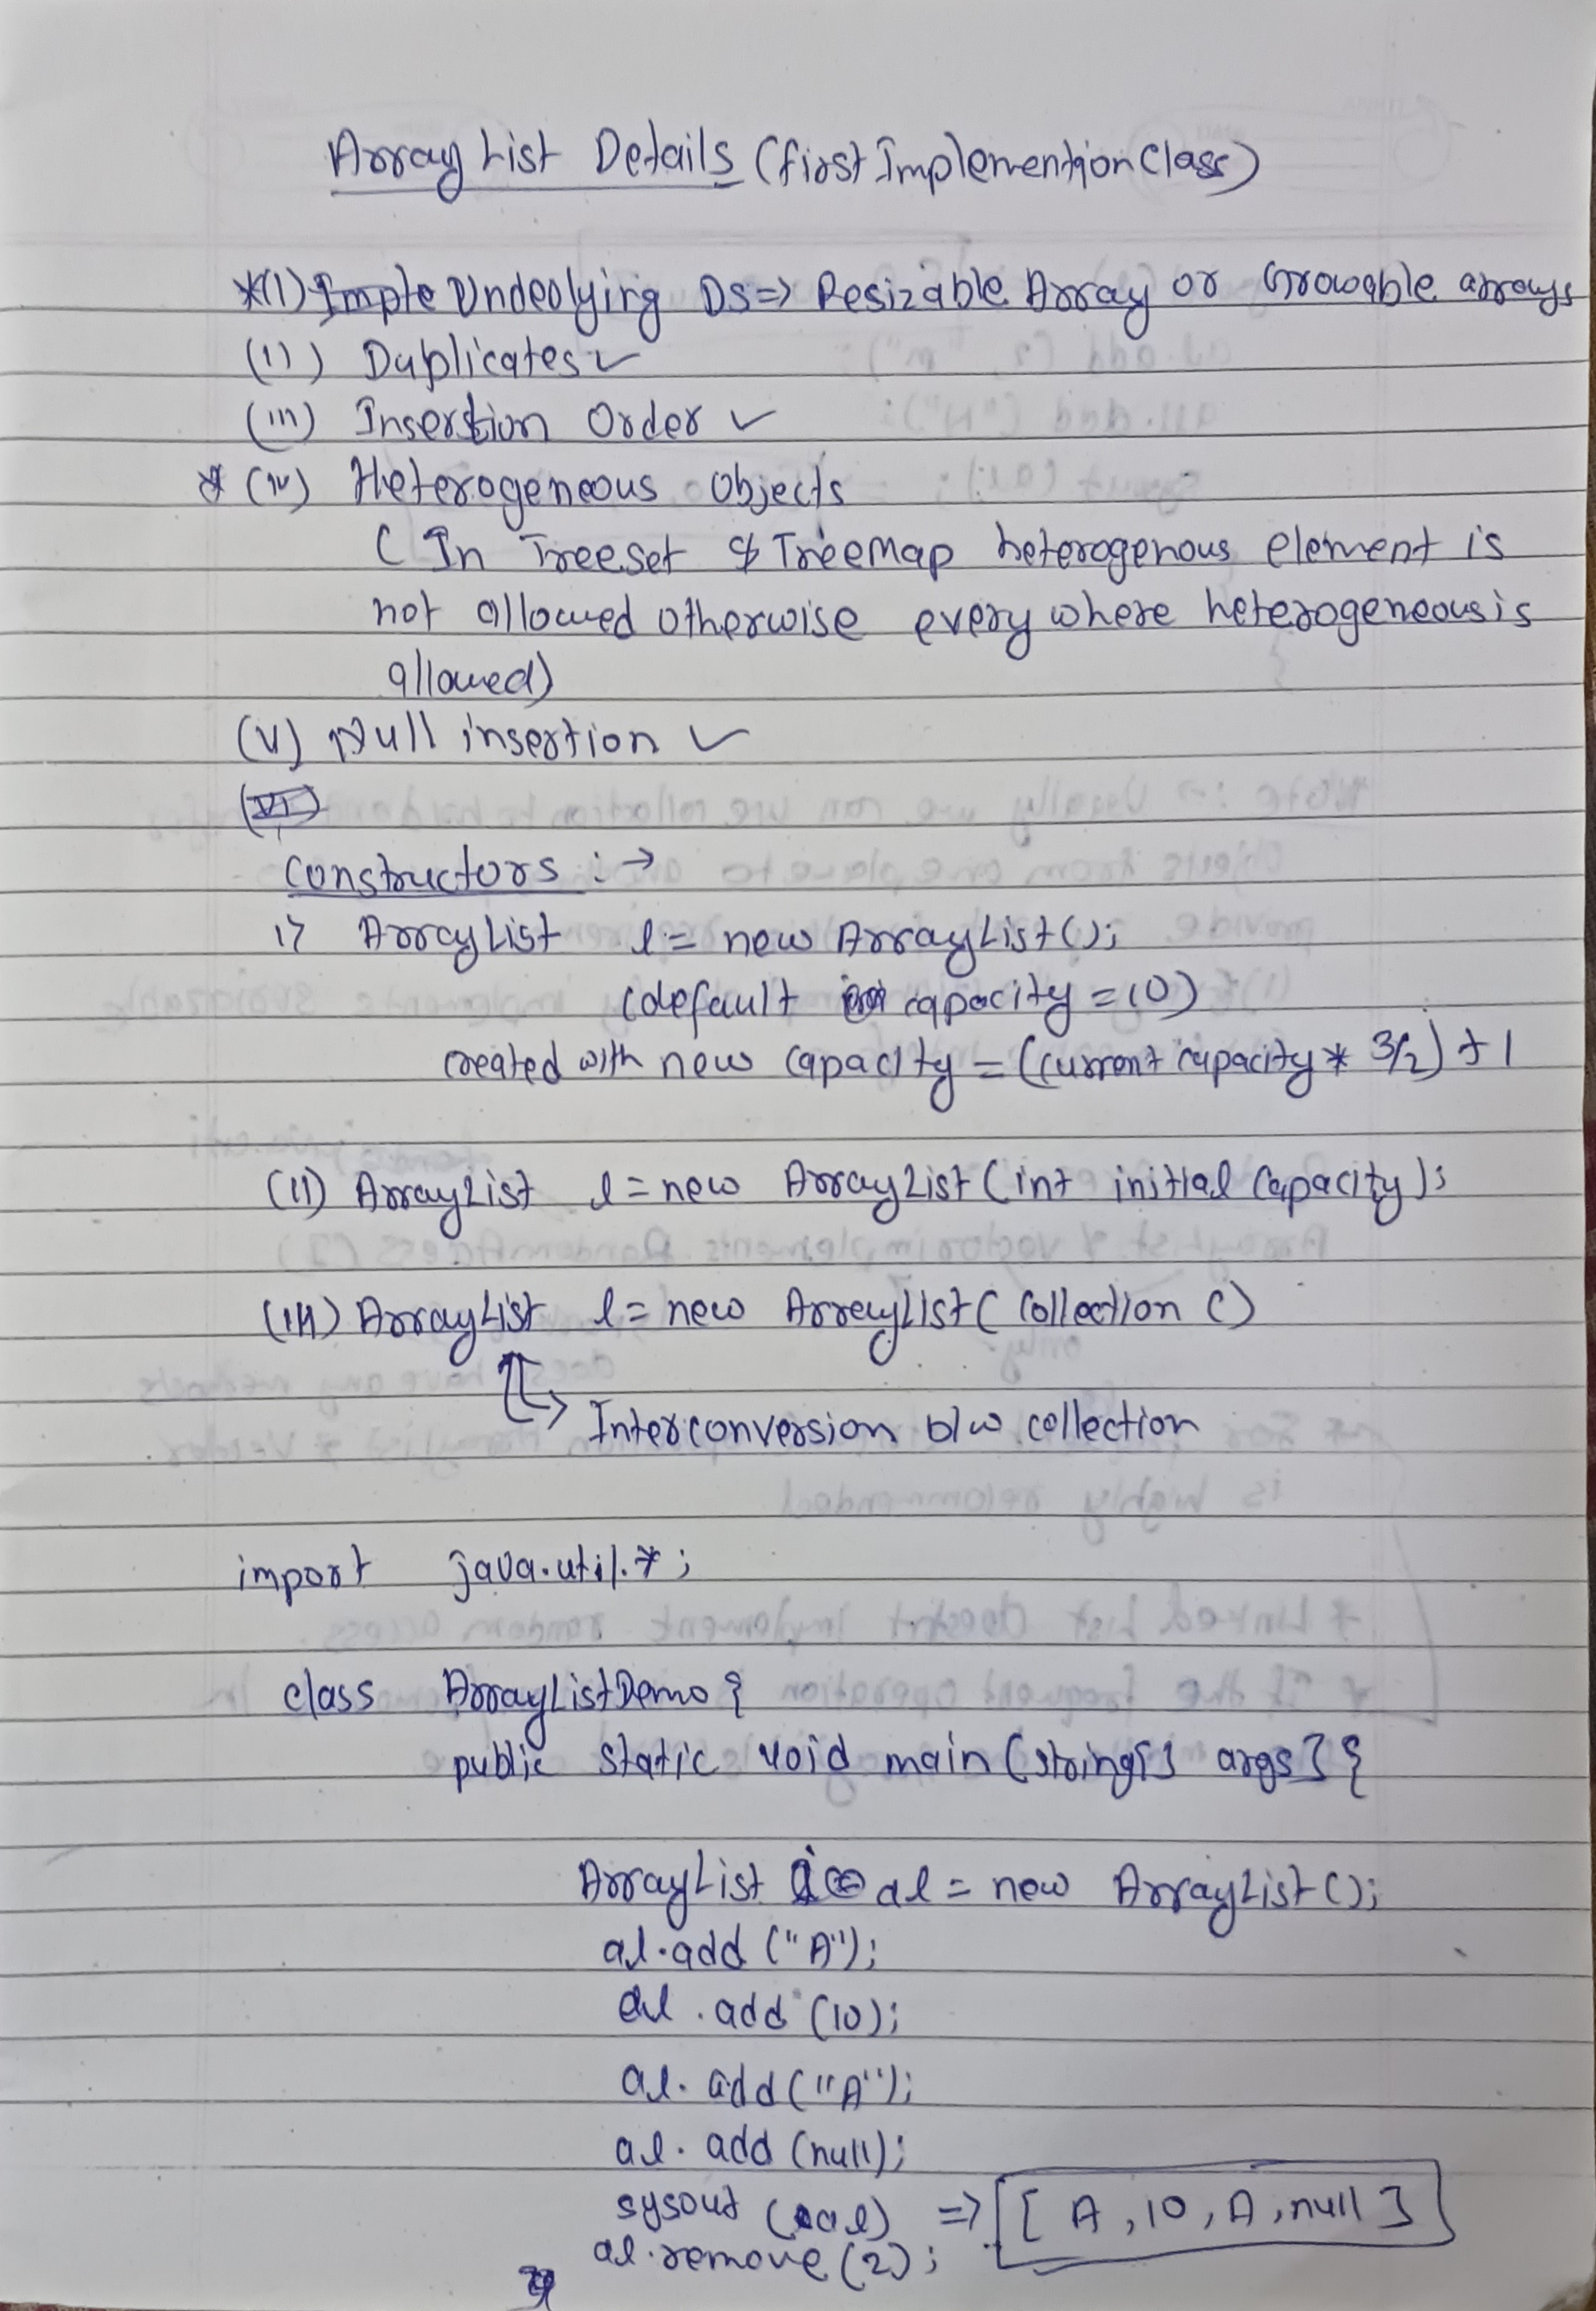 ArrayList Details (first Implemention Class)
*(i) Underlying DS => Resizable Array or Growable arrays
(ii) Duplicates ✓
(iii) Insertion Order ✓
* (iv) Heterogeneous Objects
( In Treeset & TreeMap heterogenous element is
not allowed otherwise every where heterogeneous is
allowed)
(v) Null insertion ✓
(VI)
Constructors : →
i> ArrayList l = new ArrayList();
(default capacity = 10)
created with new capacity = (current capacity * 3/2) + 1
(ii) ArrayList l = new ArrayList (int initial Capacity);
(iii) ArrayList l = new ArrayList ( Collection c)
↳ Interconversion b/w collection
import java.util.*;
class ArrayListDemo {
public static void main (string[] args] {
ArrayList al = new ArrayList ();
al.add ("A");
al.add (10);
al.add ("A");
al.add (null);
sysout (al) => [ A, 10, A, null ]
al.remove (2);